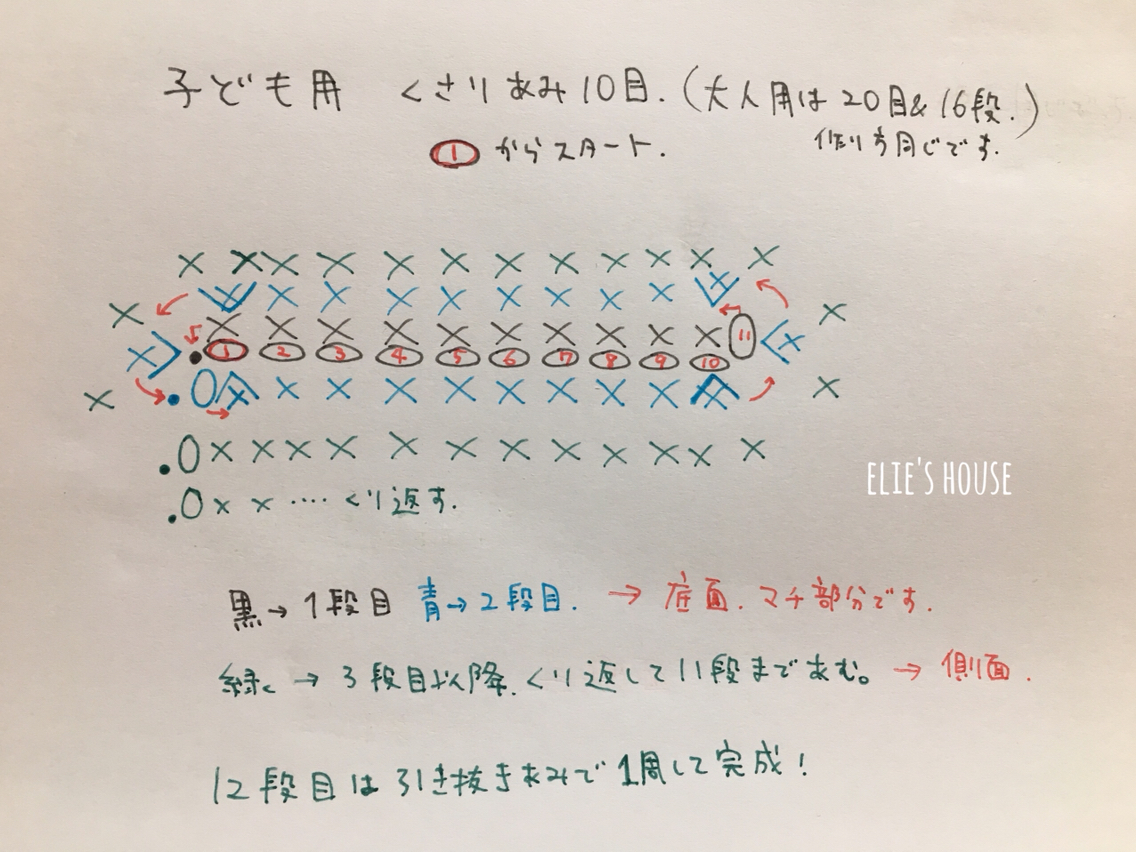 子ども用 くさりあみ10目.(大人用は20目&16段.)
①からスタート. 作り方同じです.
× × × × × × × × × × × ×
× × × × × × × × × ×
× × × × × × × × × × 11
1 2 3 4 5 6 7 8 9 10
• 0 × × × × × × × × × ×
• 0 × × × × × × × × × × × ×
.0 × × ････ くり返す.
ELIE'S HOUSE
黒→1段目 青→2段目. → 底面.マチ部分です.
緑 → 3段目以降.くり返して11段まであむ。→ 側面.
12段目は引き抜きあみで1周して完成!